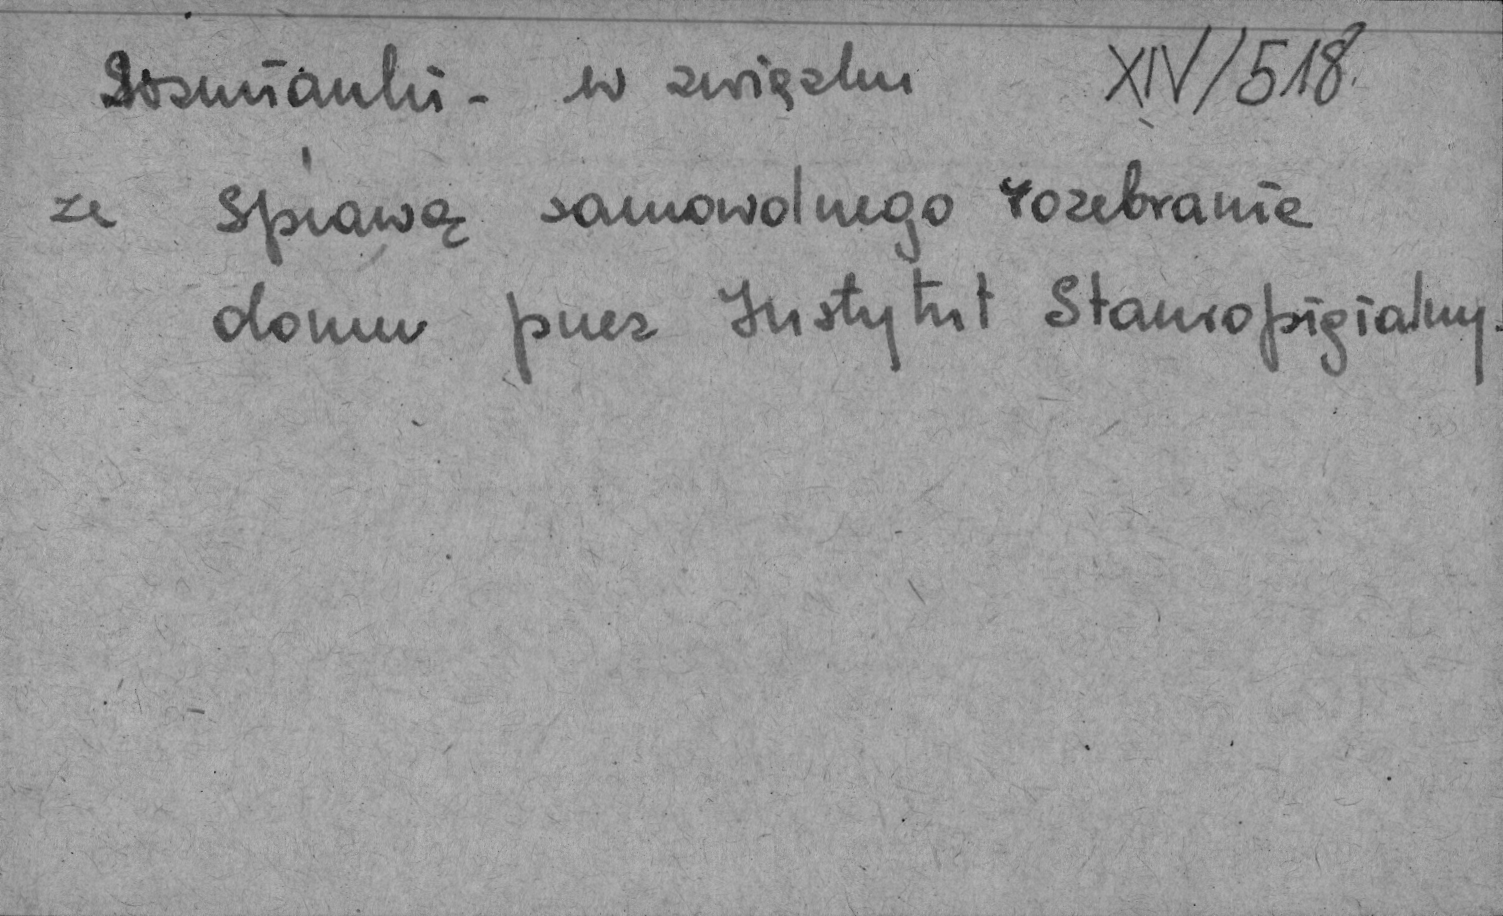 Rozmianki - w związku XIV/518.
ze sprawą samowolnego rozebranie
domu przez Instytut Stauropigialny.